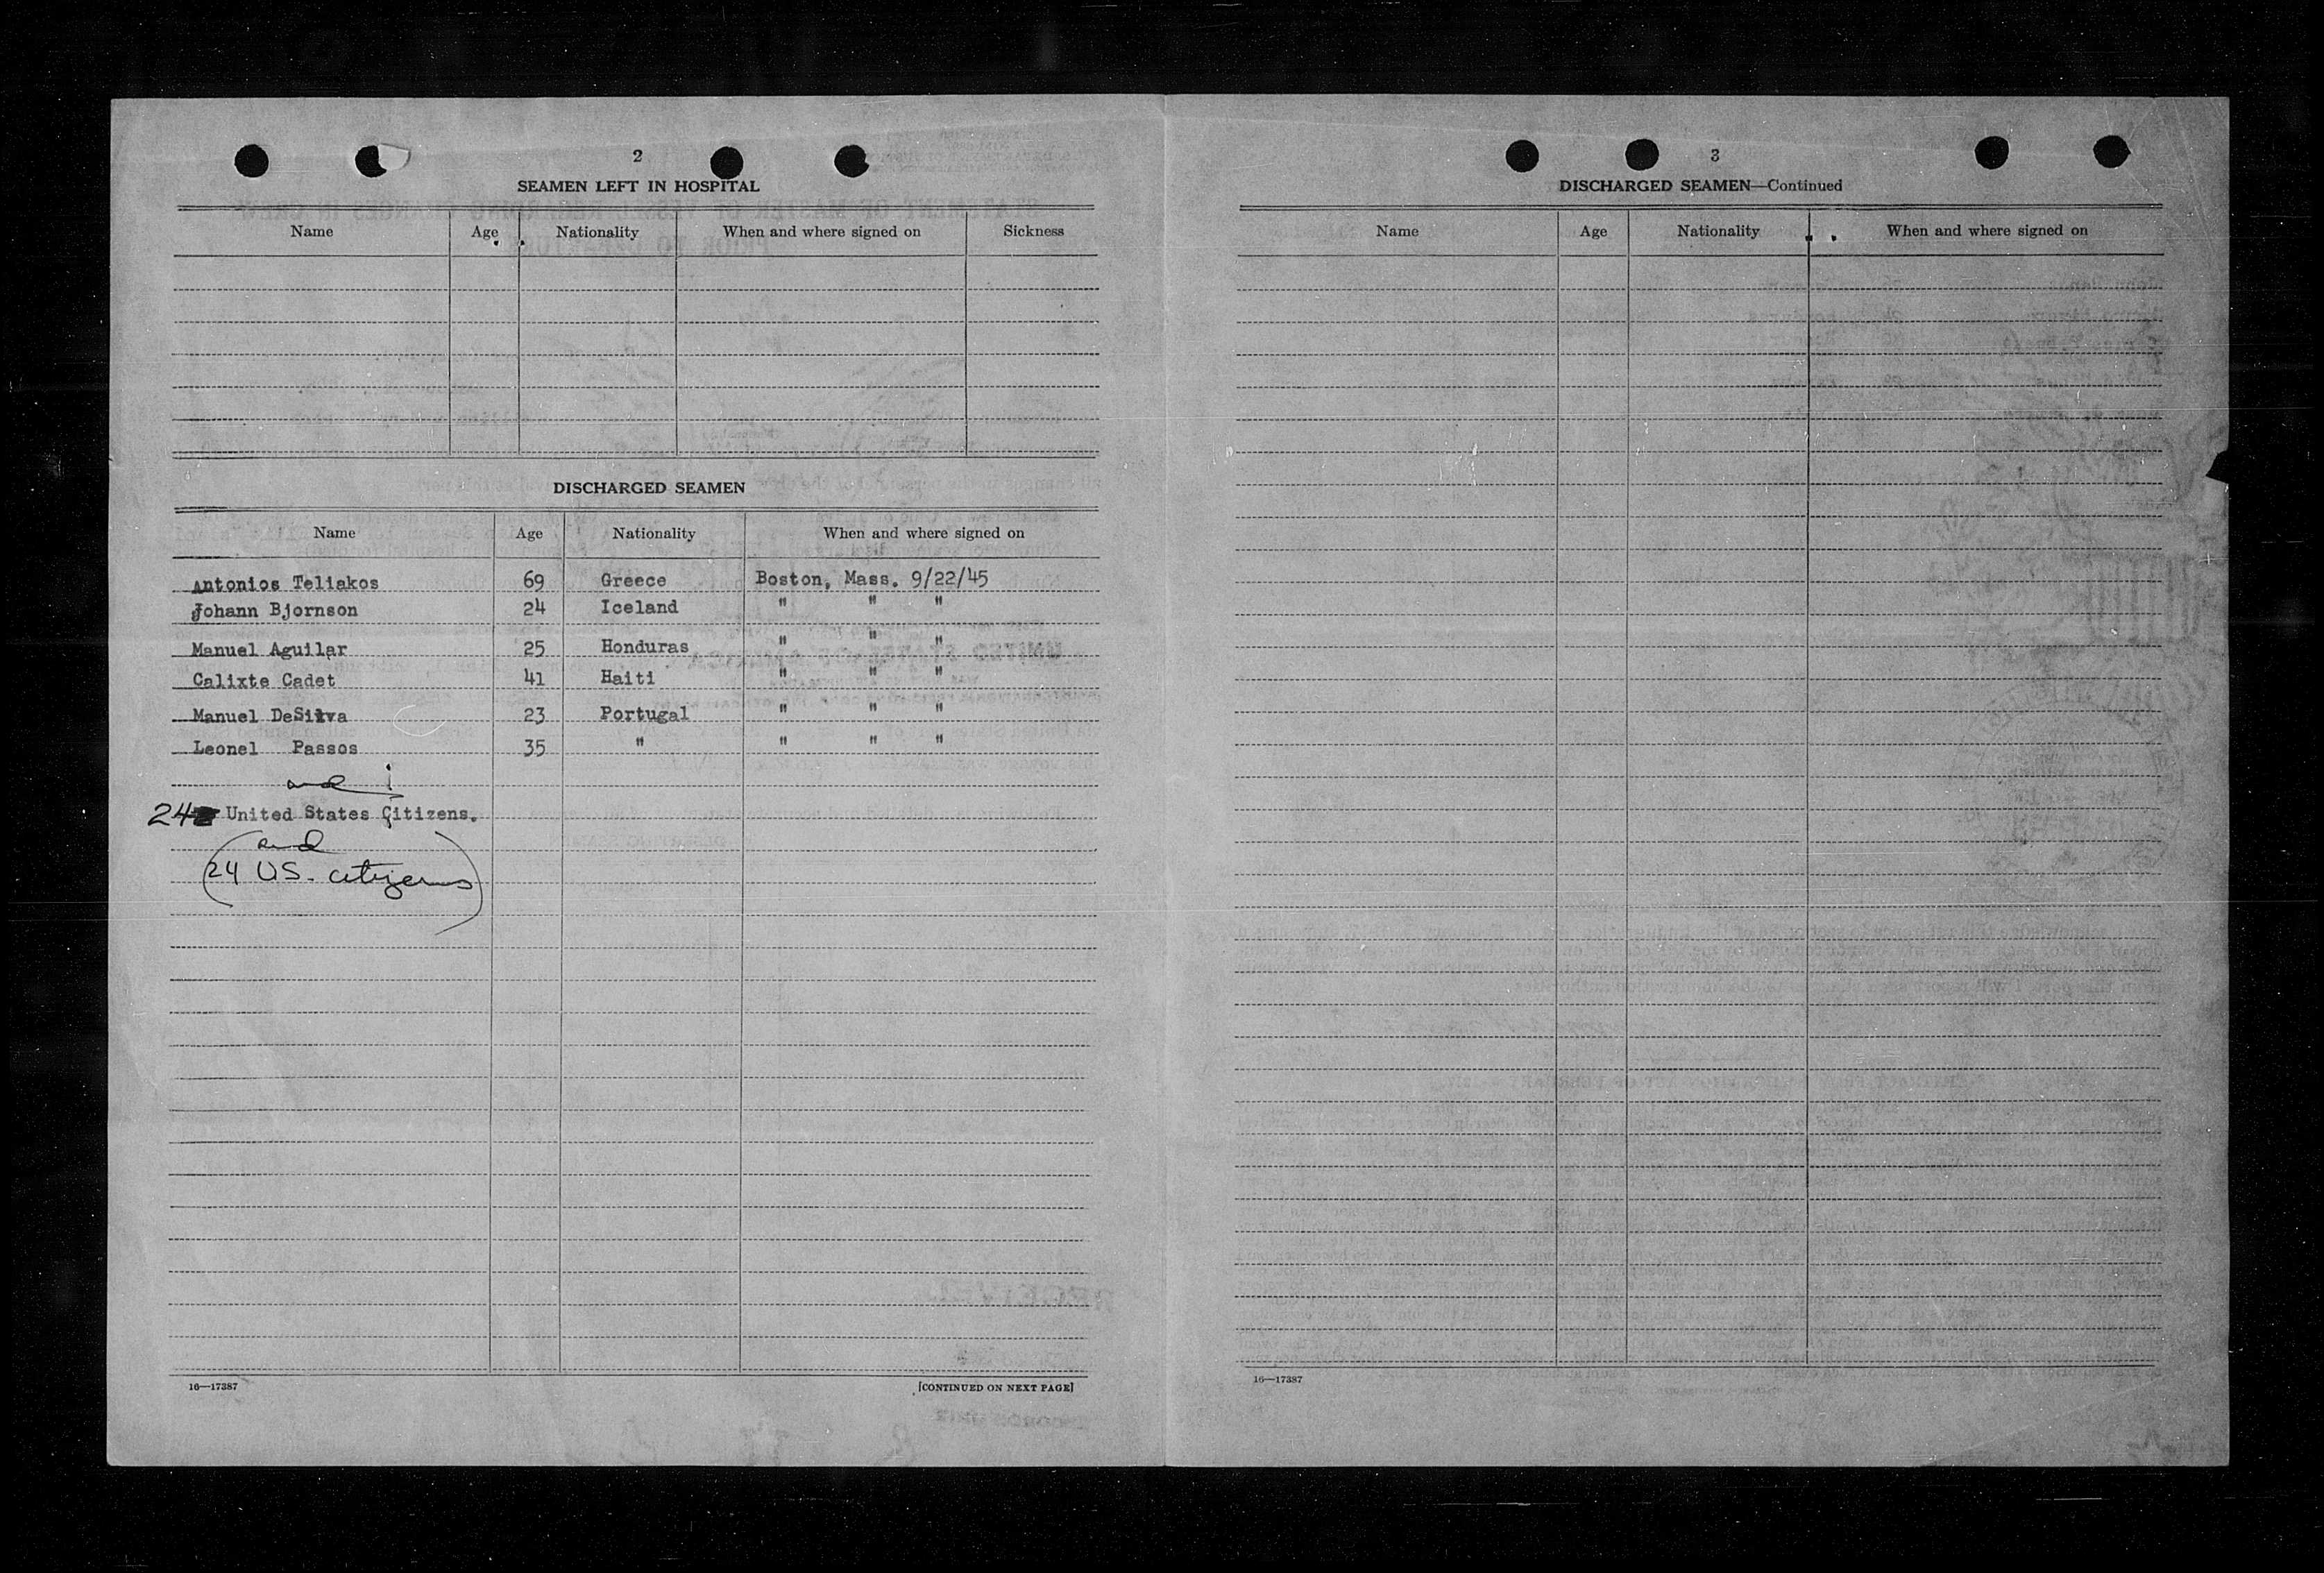 2
SEAMEN LEFT IN HOSPITAL
Name Age Nationality When and where signed on Sickness
DISCHARGED SEAMEN
Name Age Nationality When and where signed on
Antonios Teliakos 69 Greece Boston, Mass. 9/22/45
Johann Bjornson 24 Iceland " " "
Manuel Aguilar 25 Honduras " " "
Calixte Cadet 41 Haiti " " "
Manuel DeSilva 23 Portugal " " "
Leonel Passos 35 " " " "
and
24 United States Citizens.
and
(24 US. citizens)
16—17387 [CONTINUED ON NEXT PAGE]
3
DISCHARGED SEAMEN—Continued
Name Age Nationality When and where signed on
16—17387